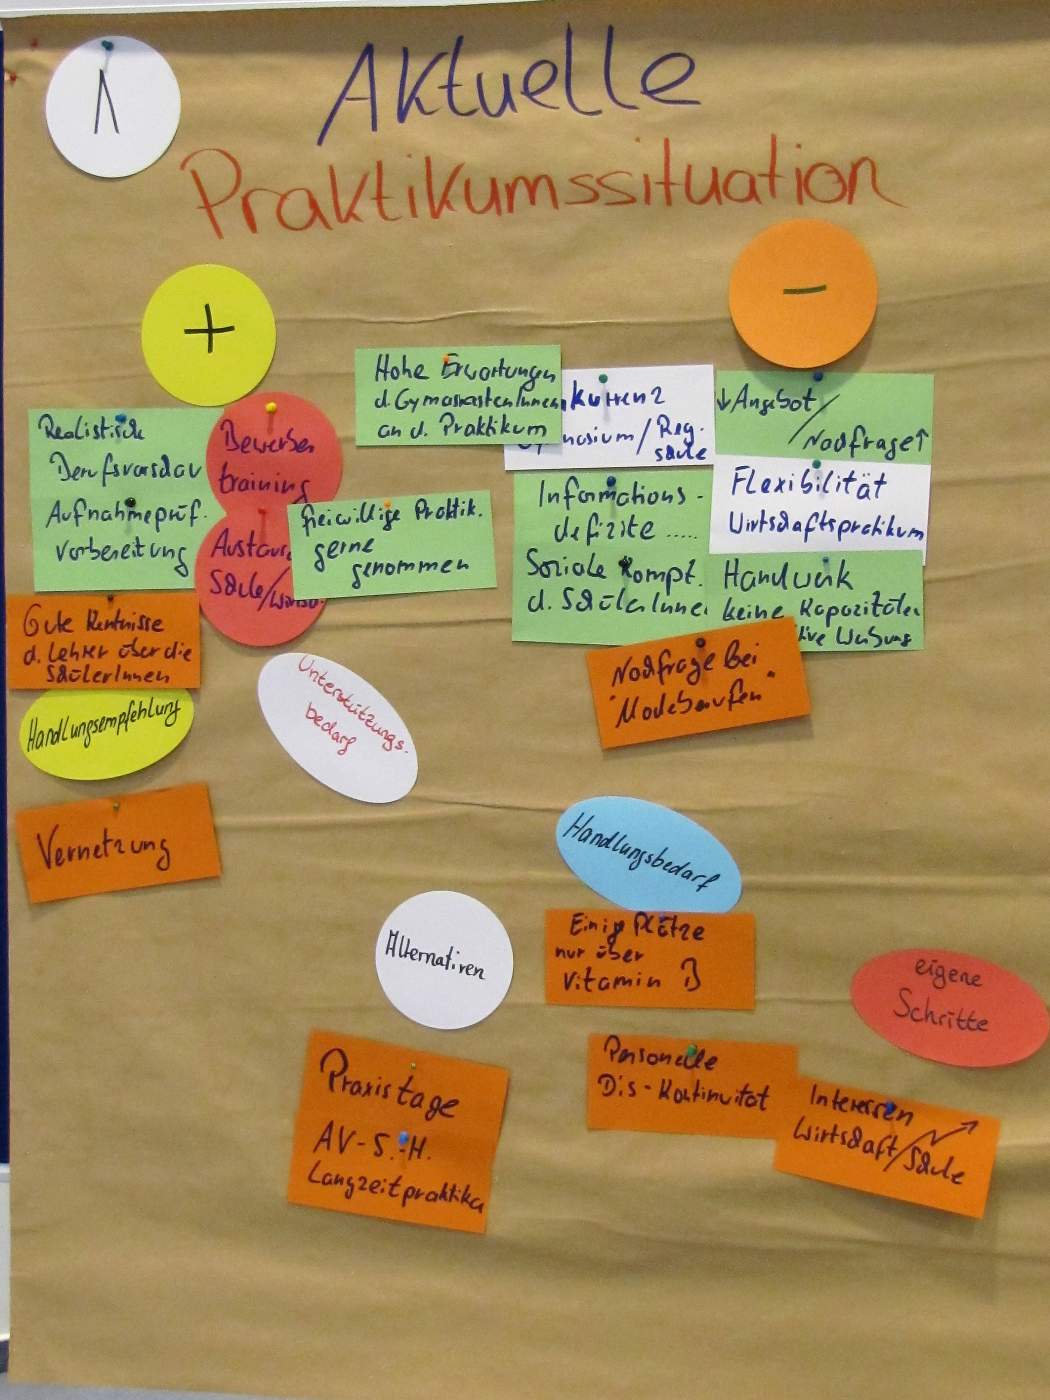 1
Aktuelle
Praktikumssituation
+
−
Realistische
Berufsvorsdau
Aufnahmeprüf.
vorbereitung
Bewerber
training
Austausc
Schule/Wirtsc.
freiwillige Praktik.
gerne
genommen
Gute Kentnisse
d. Lehrer über die
SchülerInnen
Handlungsempfehlung
Vernetzung
Unterstützungs-
bedarf
Hohe Erwartungen
d. GymnasiastenInnen
an d. Praktikum
kurrenz
nasium / Reg.
schule
↓ Angebot /
Nachfrage ↑
Informations-
defizite .....
Soziale Kompt.
d. SchülerInne
Flexibilität
Wirtschaftspraktikum
Handwerk
keine Kapazitäten
tive Werbung
Nachfrage bei
"Modeberufen"
Handlungsbedarf
Einige Plätze
nur über
Vitamin B
Alternativen
Praxistage
AV-S.-H.
Langzeitpraktika
Personelle
Dis-Kontinuität
eigene
Schritte
Interessen
Wirtschaft/Schule